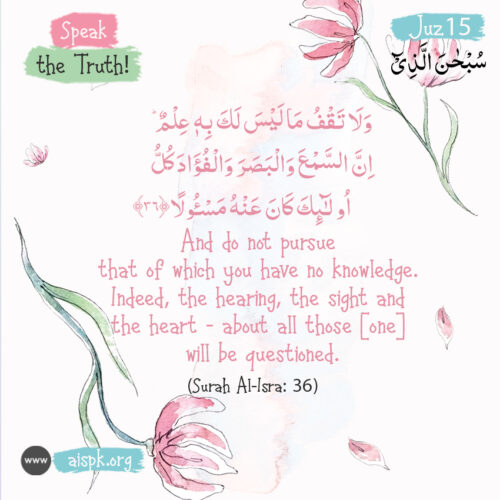 Speak
the Truth!
Juz 15
سُبْحٰنَ الَّذِیْۤ
وَلَا تَقْفُ مَا لَيْسَ لَكَ بِهٖ عِلْمٌ ؕ
اِنَّ السَّمْعَ وَالْبَصَرَ وَالْفُؤَادَ كُلُّ
اُولٰٓئِكَ كَانَ عَنْهُ مَسْـُٔولًا ﴿٣٦﴾
And do not pursue
that of which you have no knowledge.
Indeed, the hearing, the sight and
the heart - about all those [one]
will be questioned.
(Surah Al-Isra: 36)
www aispk.org